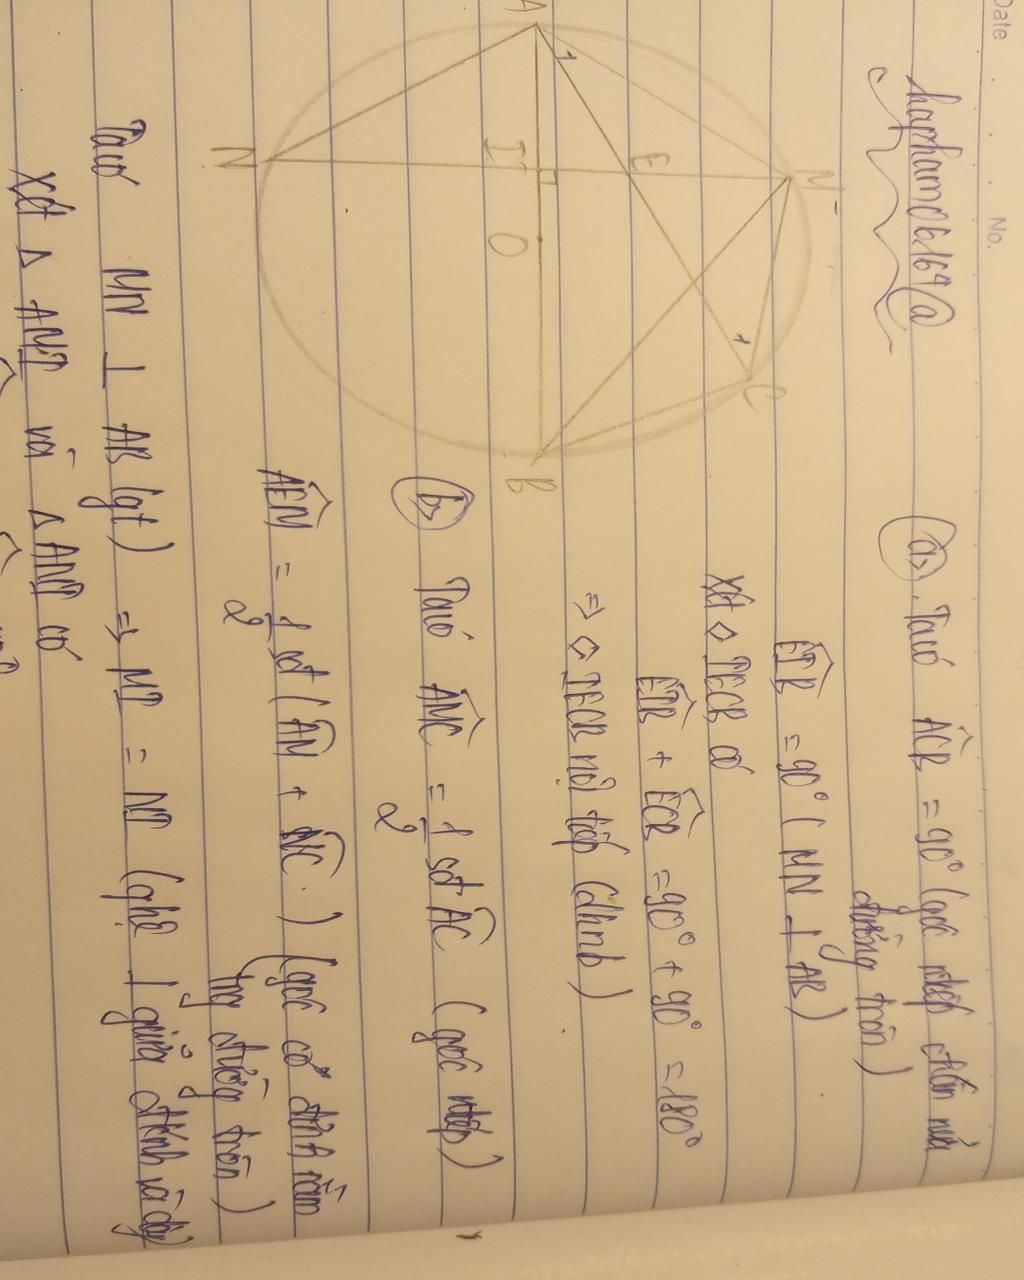 Date
No.
hapham06.169@
a, Ta có ACB = 90° (góc ntiếp chắn nửa
đường tròn)
EIB = 90° (MN ⊥ AB)
Xét ◇ IECB có
EIB + ECB = 90° + 90° = 180°
=> ◇ IECB nội tiếp (dhnb)
b, Ta có AMC = 1/2 sđ AC (góc ntiếp)
AEM = 1/2 sđ (AN + MC) (góc có đỉnh nằm
trg đường tròn)
Ta có MN ⊥ AB (gt) => MI = NI (qhệ ⊥ giữa đkính và dây
Xét Δ AMI và Δ ANI có
A
1
M
E
C
1
I
O
N
B